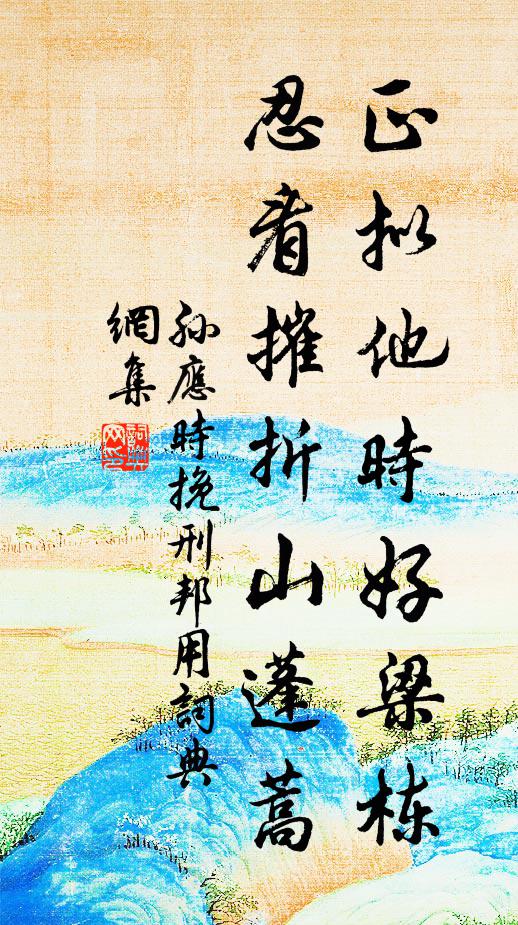 正拟他時好梁栋
忍看摧折山蓬蒿
孙應時挽刑邦用詞典
網集